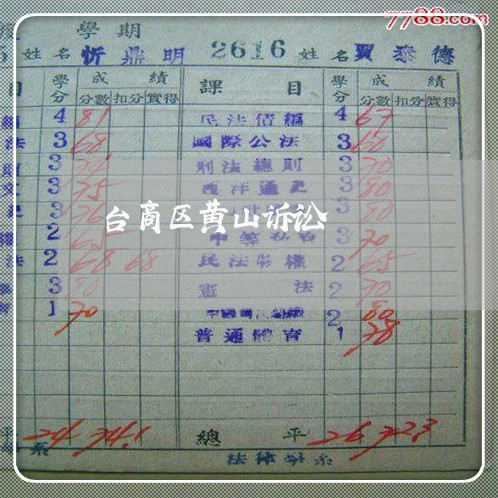 7788.com
學期
5 姓名 忻鼎明 2616 姓名 賈泰德
目 學分 成績 課目 學分 成績
分數 扣分 實得 分數 扣分 實得
4 81 民法債編 4 67
法 3 68 國際公法 3 60
3 刑法總則 3 70
3 75 西洋通史 3 80
3 76 3 80
台商区黄山诉讼
權 2 65 3 70
法 2 68 68 民法物權 2 65
3 80 憲法 2 70
育 1 70 2 80
普通體育 1 78
平 24 74.1 總平 26 72.3
系 法律學系